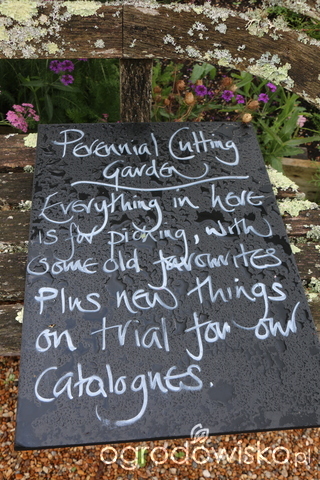 Perennial Cutting
Garden
Everything in here
is for picking, with
some old favourites
Plus new things
on trial for our
Catalogues.
ogrodowisko.pl